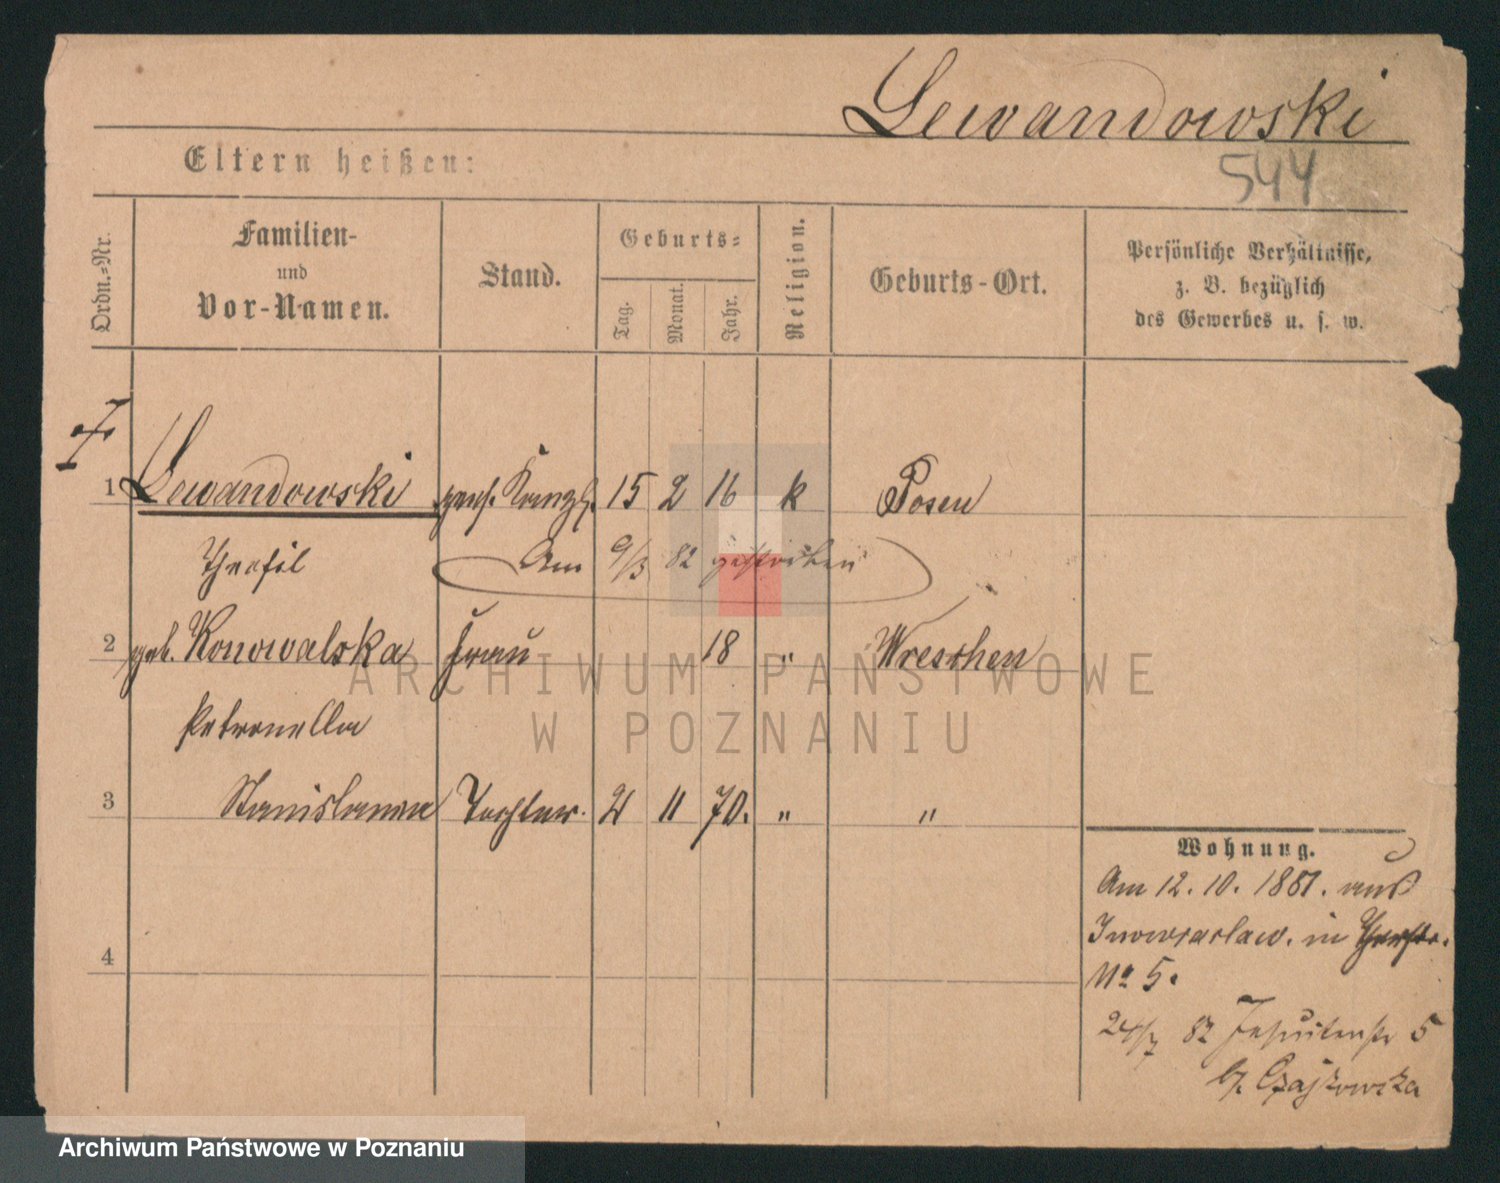 Lewandowski
544
Eltern heißen:
Ordn.=Nr.
Familien-
und
Vor-Namen.
Stand.
Geburts=
Tag.
Monat.
Jahr.
Religion.
Geburts-Ort.
Persönliche Verhältnisse,
z. B. bezüglich
des Gewerbes u. s. w.
1 Lewandowski pens. Kanzl. 15 2 16 k Posen
Theofil Am 9/3 82 gestorben
2 geb. Konowalska Frau 18 " Wreschen
Petronella
3 Stanislawa Tochter. 21 11 70. " "
4
Wohnung.
Am 12. 10. 1881. aus
Inowrazlaw. in
No 5.
24/7 82 Jesuitenstr 5
b. Czajkowska
ARCHIWUM PAŃSTWOWE
W POZNANIU
Archiwum Państwowe w Poznaniu